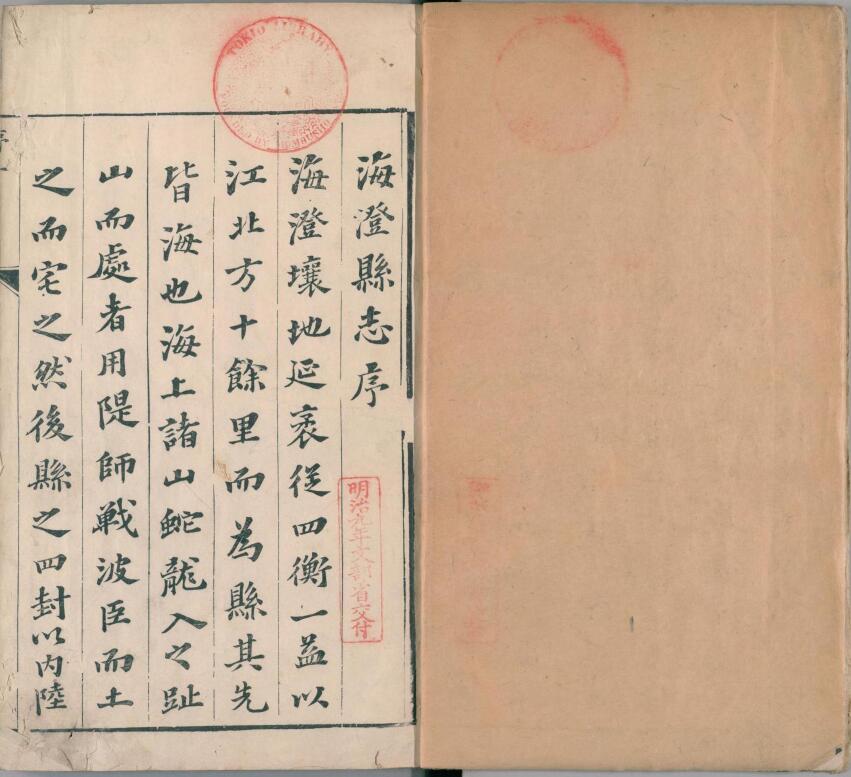 海澄縣志序
海澄壤地延袤從四衡一益以
江北方十餘里而為縣其先
皆海也海上諸山蛇龍入之趾
山而處者用隄師戰波臣而土
之而宅之然後縣之四封以內陸
明治九年文部省交付
TOKIO LIBRARY